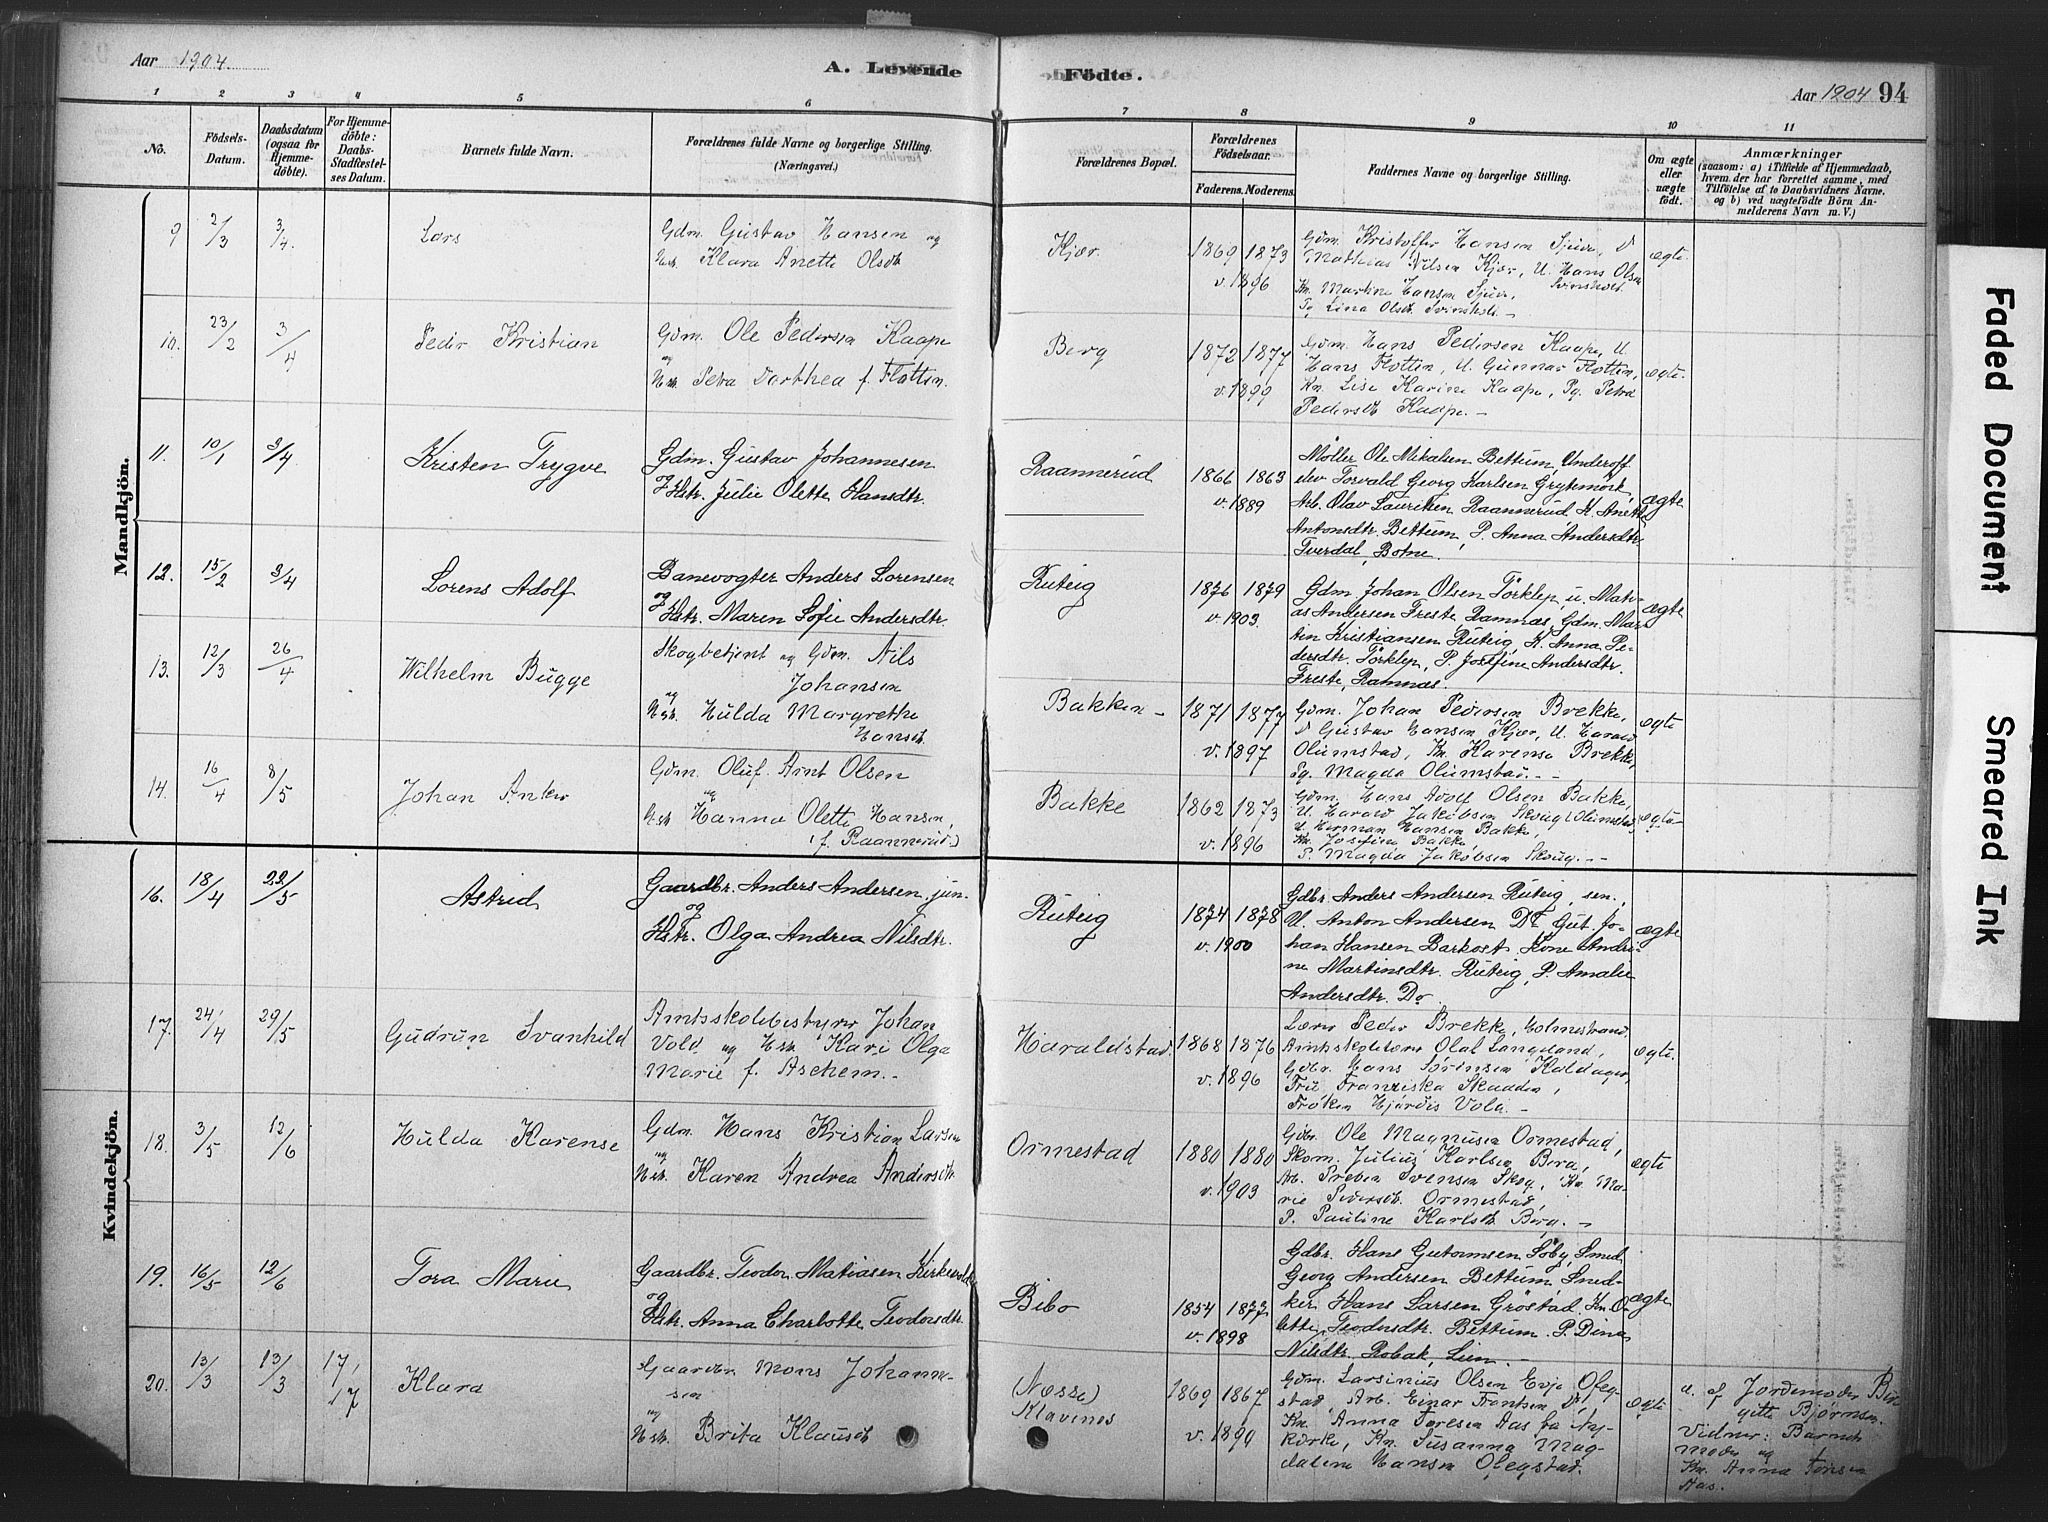 Aar 1904.
A. Levende Fødte.
Aar 1904 94
1 2 3 4 5 6 7 8 9 10 11
No.
Fødsels-
Datum.
Daabsdatum
(ogsaa for
Hjemme-
døbte).
For Hjemme-
døbte:
Daabs-
Stadfæstel-
ses Datum.
Barnets fulde Navn.
Forældrenes fulde Navne og borgerlige Stilling.
(Næringsvei.)
Forældrenes Bopæl.
Forældrenes
Fødselsaar.
Faderens. Moderens.
Faddernes Navne og borgerlige Stilling.
Om ægte
eller
uægte
født.
Anmærkninger
(saasom: a) i Tilfælde af Hjemmedaab,
hvem der har forrettet samme, med
Tilføielse af to Daabsvidners Navne.
og b) ved uægtefødte Børn An-
melderens Navn m. V.)
Mandkjøn.
9 2/3 3/4. Lars
Gdm. Gustav Hansen og
Hst. Klara Anette Olsdt.
Kjær. 1869 1873
v. 1896
Gdm. Kristoffer Hansen Sjue, D
Mathias Nilsen Kjær, U. Hans Olsen
Svinsholt.
Kn. Martine Hansen Sjue,
Pg. Lina Olsdt. Svinsholt. –
ægte.
10. 23/2 3/4 Peder Kristian
Gdm. Ole Pedersen Kaape
og
Hst. Petra Dorthea f. Flotten.
Berg 1872 1877
v. 1899
Gdm. Hans Pedersen Kaape, U.
Hans Flotten, U. Gunnar Flotten,
Kn. Lise Karine Kaape, Pg. Petra
Pedersdt. Kaape. –
ægte.
11. 10/1 3/4 Kristen Trygve
Gdm. Gustav Johannesen
og
Hstr. Julie Olette Hansdtr.
Raannerud 1866 1863
v. 1889
Møller Ole Mikalsen Bettum, Underoff.
elev Torvald Georg Karlsen Grytemörk,
Arb. Olav Lauritsen Raannerud K. Anette
Antonsdtr. Bettum, P. Anna Andersdtr.
Tverdal, Botne.
ægte
12. 15/2 3/4 Lorens Adolf
Banevogter Anders Lorensen
og
Hstr. Maren Sofie Andersdtr.
Ruteig 1876 1879
v. 1903.
Gdm Johan Olsen Törklep, u. Mati-
as Andersen Freste, Ramnæs, Gdm. Mar-
tin Kristiansen Ruteig, K. Anna Pe-
dersdtr. Törklep, P. Josefine Andersdtr.
Freste, Ramnæs.
ægte
13. 12/3 26/4 Wilhelm Bugge
Skogbetjent og Gdm. Nils
Johansen
og
Hst. Hulda Margrethe
Hansdt.
Bakken – 1871 1877
v. 1897
Gdm. Johan Pedersen Brekke,
D Gustav Hansen Kjær, U. Harald
Olumstad, Kn. Karense Brekke,
Pg. Magda Olumstad. –
ægte
14. 16/4 8/5 Johan Anker
Gdm. Oluf Arnt Olsen
og
Hst. Hanna Olette Hansen,
(f. Raannerud.)
Bakke 1862 1873
v. 1896
Gdm. Hans Adolf Olsen Bakke,
U. Harald Jakobsen Skoug (Olumstad)
U. Herman Hansen Bakke,
Kn. Josefine Bakke
P. Magda Jakobsen Skoug. –
ægte
Kvindekjøn.
16. 18/4 22/5 Astrid
Gaardbr. Anders Andersen, jun-
og
Hstr. Olga Andrea Nilsdtr.
Ruteig 1874 1878
v. 1900
Gdbr. Anders Andersen Ruteig, sen.,
U. Anton Andersen Do, Gut. Jo-
han Hansen Barkost, Kone Andri-
ne Martinsdtr. Ruteig, P. Amalie
Andersdtr. Do.
ægte
17. 24/4 29/5 Gudrun Svanhild
Amtsskolebestyrer Johan
Vold og Hst. Kari Olga
Marie f. Aschem. –
Haraldstad. 1868 1876
v. 1896
Lærer Peder Brekke, Holmestrand.
Amtsskolelærer Olaf Langeland,
Gdbr. Hans Sørensen Koldager,
Fru Franziska Skaaden,
Frøken Hjørdis Vold. –
ægte.
18. 3/5 12/6 Hulda Karense
Gdm. Hans Kristian Larsen
og
Hst. Karen Andrea Andersdt.
Ormestad 1880 1880
v. 1903
Gdbr. Ole Magnusen Ormestad,
Skom. Julius Karlsen Berg,
Arb. Preben Svensen Skog, Kn. Ma-
rie Pedersdt. Ormestad,
P. Pauline Karlsdt. Berg. –
ægte
19. 16/5 12/6 Tora Marie
Gaardbr. Teodor Matiasen Kirkevold
og
Hstr. Anna Charlotte Teodorsdtr.
Bibo 1854 1877
v. 1898
Gdbr. Hans Gutormsen Söby, Smed
Georg Andersen Bettum, Sned-
ker Hans Larsen Gröstad. Kn. O-
lette Teodorsdtr. Bettum. P. Dina
Nilsdtr. Robak, Lien. –
ægte
20. 13/3 13/3 17/7 Klara
Gaardbr. Mons Johanne-
sen
og
Hst. Brita Klausdt.
(Næsse)
Klavenes 1869 1867
v. 1890
Gdm. Larsinius Olsen Evje Ofeg-
stad, Arb. Einar Frantsen Do,
Kn. Anna Toresen Aas fra Ny-
kirke, Kn. Susanna Mag-
dalene Hansen Ofegstad.
ægte
d. af Jordemoder Bir-
gitte Bjørnsen.
Vidner: Barnets
Moder og
Kn. Anna Toresen
Aas.
Faded Document
Smeared Ink